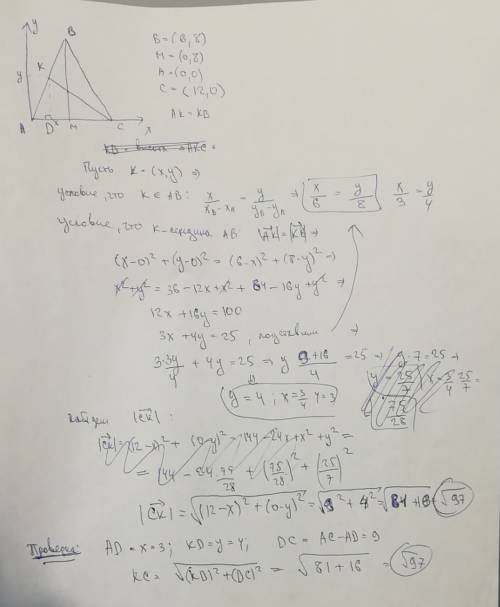 y
B
K
y
A
D
x
M
C
x
B = (6, 8)
M = (0, 8)
A = (0, 0)
C = (12, 0)
AK = KB
Пусть K = (x, y) ⇒
условие, что K ∈ AB: x/(x_B - x_A) = y/(y_B - y_A) ⇒ x/6 = y/8 x/3 = y/4
условие, что K-середина AB: |AK| = |KB| ⇒
(x-0)² + (y-0)² = (6-x)² + (8-y)² ⇒
x² + y² = 36 - 12x + x² + 64 - 16y + y² ⇒
12x + 16y = 100
3x + 4y = 25, подставим ⇒
3·3y/4 + 4y = 25 ⇒ y (9+16)/4 = 25 ⇒ y·7 = 25 ⇒
y = 4; x = 3/4 y = 3
y = 25/7 x = 3/4 · 25/7 =
75/28
Найдём |CK|:
|CK| = (12-x)² + (0-y)² = 144 - 24x + x² + y² =
= 144 - 24·75/28 + (75/28)² + (25/7)²
|CK| = √((12-x)² + (0-y)²) = √(9² + 4²) = √(81+16) = √97
Проверка: AD = x = 3; KD = y = 4; DC = AC - AD = 9
KC = √((KD)² + (DC)²) = √(81 + 16) = √97